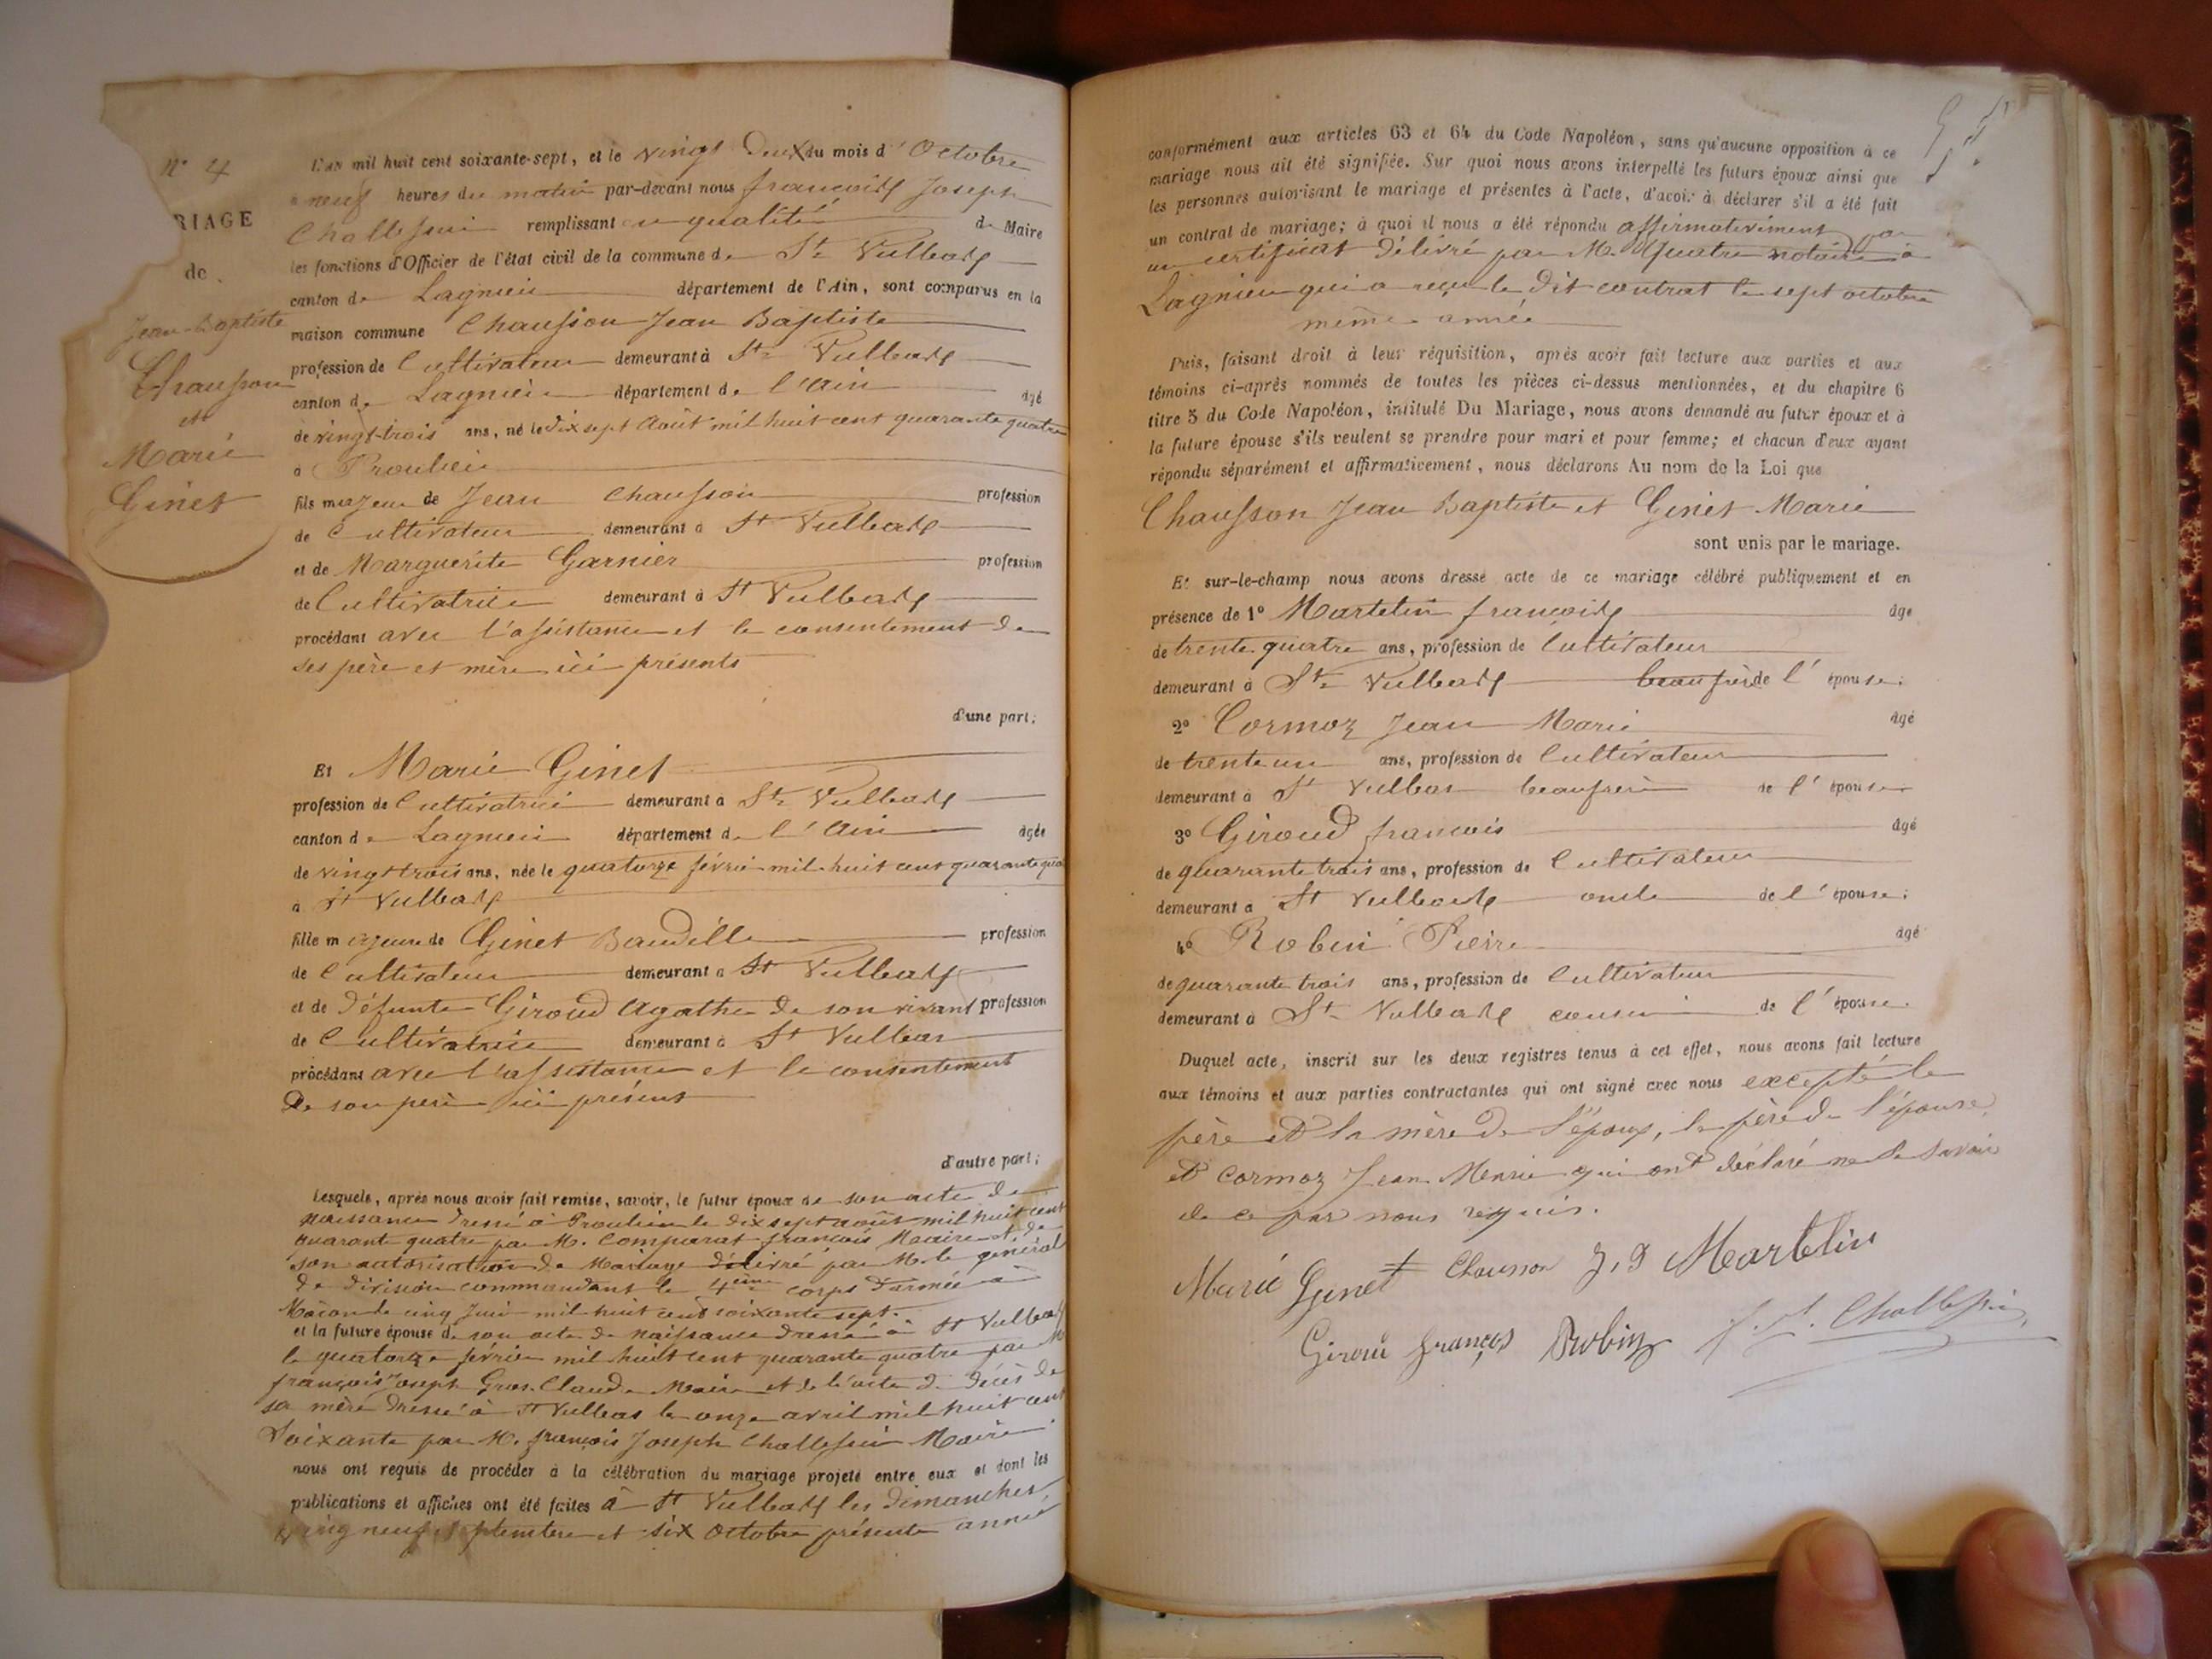 n° 4
RIAGE
de
Jean-Baptiste
Chausson
et
Marie
Ginet
L'an mil huit cent soixante-sept, et le vingt deux du mois d'Octobre
à neuf heures du matin par-devant nous françois Joseph
Challessin remplissant en qualité de Maire
les fonctions d'Officier de l'état civil de la commune de St Vulbas
canton de Lagnieu département de l'Ain, sont comparus en la
maison commune Chausson Jean Baptiste
profession de Cultivateur demeurant à St Vulbas
canton de Lagnieu département de l'Ain âgé
de vingt-trois ans, né le dix sept Août mil huit cent quarante quatre
à Proulieu
fils majeur de Jean Chausson profession
de Cultivateur demeurant à St Vulbas
et de Marguerite Garnier profession
de Cultivatrice demeurant à St Vulbas
procédant avec l'assistance et le consentement de
ses père et mère ici présents
d'une part;
Et Marie Ginet
profession de Cultivatrice demeurant à St Vulbas
canton de Lagnieu département de l'Ain âgée
de vingt trois ans, née le quatorze février mil huit cent quarante quatre
à St Vulbas
fille majeure de Ginet Baudille profession
de Cultivateur demeurant à St Vulbas
et de défunte Giroud Agathe de son vivant profession
de Cultivatrice demeurant à St Vulbas
procédant avec l'assistance et le consentement
De son père ici présent
d'autre part;
Lesquels, après nous avoir fait remise, savoir, le futur époux de son acte de
naissance dressé à Proulieu le dix sept août mil huit cent
quarante quatre par M. Comparat françois Maire et de
son autorisation de Mariage délivré par M. le général
de division commandant le 4ème corps d'armée à
Macon le cinq Juin mil huit cent soixante sept.
et la future épouse de son acte de naissance dressé à St Vulbas
le quatorze février mil huit cent quarante quatre par M
françois Joseph Gros-Claude Maire et de l'acte de décès de
sa mère dressé à St Vulbas le onze avril mil huit cent
Soixante par M. françois Joseph Challessin Maire
nous ont requis de procéder à la célébration du mariage projeté entre eux et dont les
publications et affiches ont été faites à St Vulbas les dimanches
vingt neuf septembre et six Octobre présente année
conformément aux articles 63 et 64 du Code Napoléon, sans qu'aucune opposition à ce
mariage nous ait été signifiée. Sur quoi nous avons interpellé les futurs époux ainsi que
les personnes autorisant le mariage et présentes à l'acte, d'avoir à déclarer s'il a été fait
un contrat de mariage; à quoi il nous a été répondu affirmativement par
un certificat délivré par M. Quatre notaire à
Lagnieu qui a reçu le dit contrat le sept octobre
même année
Puis, faisant droit à leur réquisition, après avoir fait lecture aux parties et aux
témoins ci-après nommés de toutes les pièces ci-dessus mentionnées, et du chapitre 6
titre 5 du Code Napoléon, intitulé Du Mariage, nous avons demandé au futur époux et à
la future épouse s'ils veulent se prendre pour mari et pour femme; et chacun d'eux ayant
répondu séparément et affirmativement, nous déclarons Au nom de la Loi que
Chausson Jean Baptiste et Ginet Marie
sont unis par le mariage.
Et sur-le-champ nous avons dressé acte de ce mariage célébré publiquement et en
présence de 1° Martelin françois âgé
de trente quatre ans, profession de Cultivateur
demeurant à St Vulbas beau frère de l'épouse;
2° Cormoz Jean Marie âgé
de trente un ans, profession de Cultivateur
demeurant à St Vulbas beaufrère de l'épouse
3° Giroud françois âgé
de quarante trois ans, profession de Cultivateur
demeurant à St Vulbas oncle de l'épouse;
4° Robin Pierre âgé
de quarante trois ans, profession de Cultivateur
demeurant à St Vulbas cousin de l'épouse.
Duquel acte, inscrit sur les deux registres tenus à cet effet, nous avons fait lecture
aux témoins et aux parties contractantes qui ont signé avec nous excepté le
père et la mère de l'époux, le père de l'épouse
et Cormoz Jean Marie qui ont déclaré ne le savoir
de ce par nous requis.
Marie Ginet Chausson J, J Martelin
Giroud françois Robin f. J. Challessin